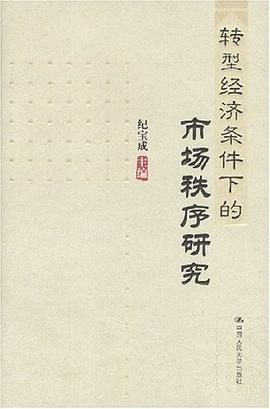 转型经济条件下的
市场秩序研究
纪宝成
主编
中国人民大学出版社